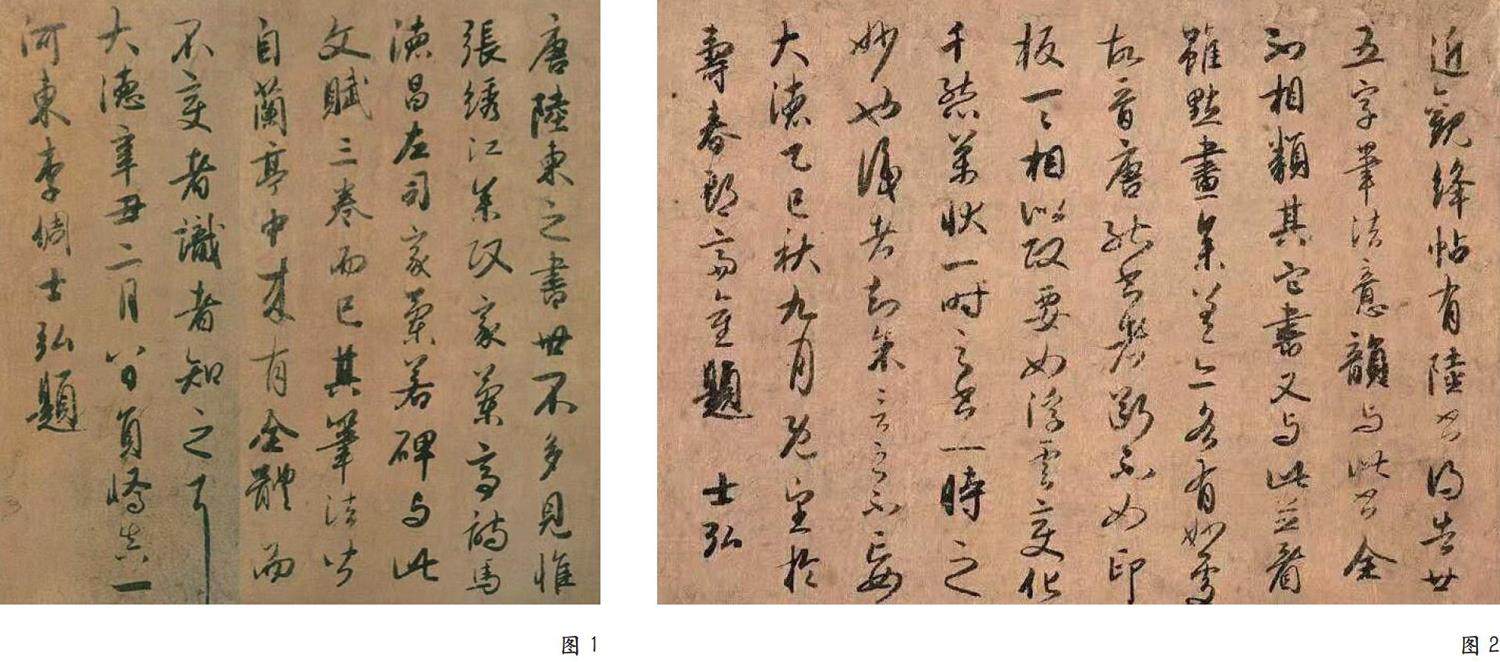 唐陸柬之書世不多見惟
張綉江参政家蘭亭詩馬
德昌左司家蘭若碑与此
文賦三卷而已其筆法皆
自蘭亭中來有全體而
不变者識者知之耳
大德辛丑二月八日員嶠真一
河東李倜士弘題
图 1
近觀絳帖有陸書得告世
五字筆法意韻与此書全
不相類其它書又与此並看
雖點畫參差亦各有如
故昔唐能書者断不如印
板一一相似政要如浮雲变化
千態萬狀一時之書一時之
妙也識者知余言之不妄
大德乙巳秋九月既望於
壽春郡齋重題 士弘
图 2